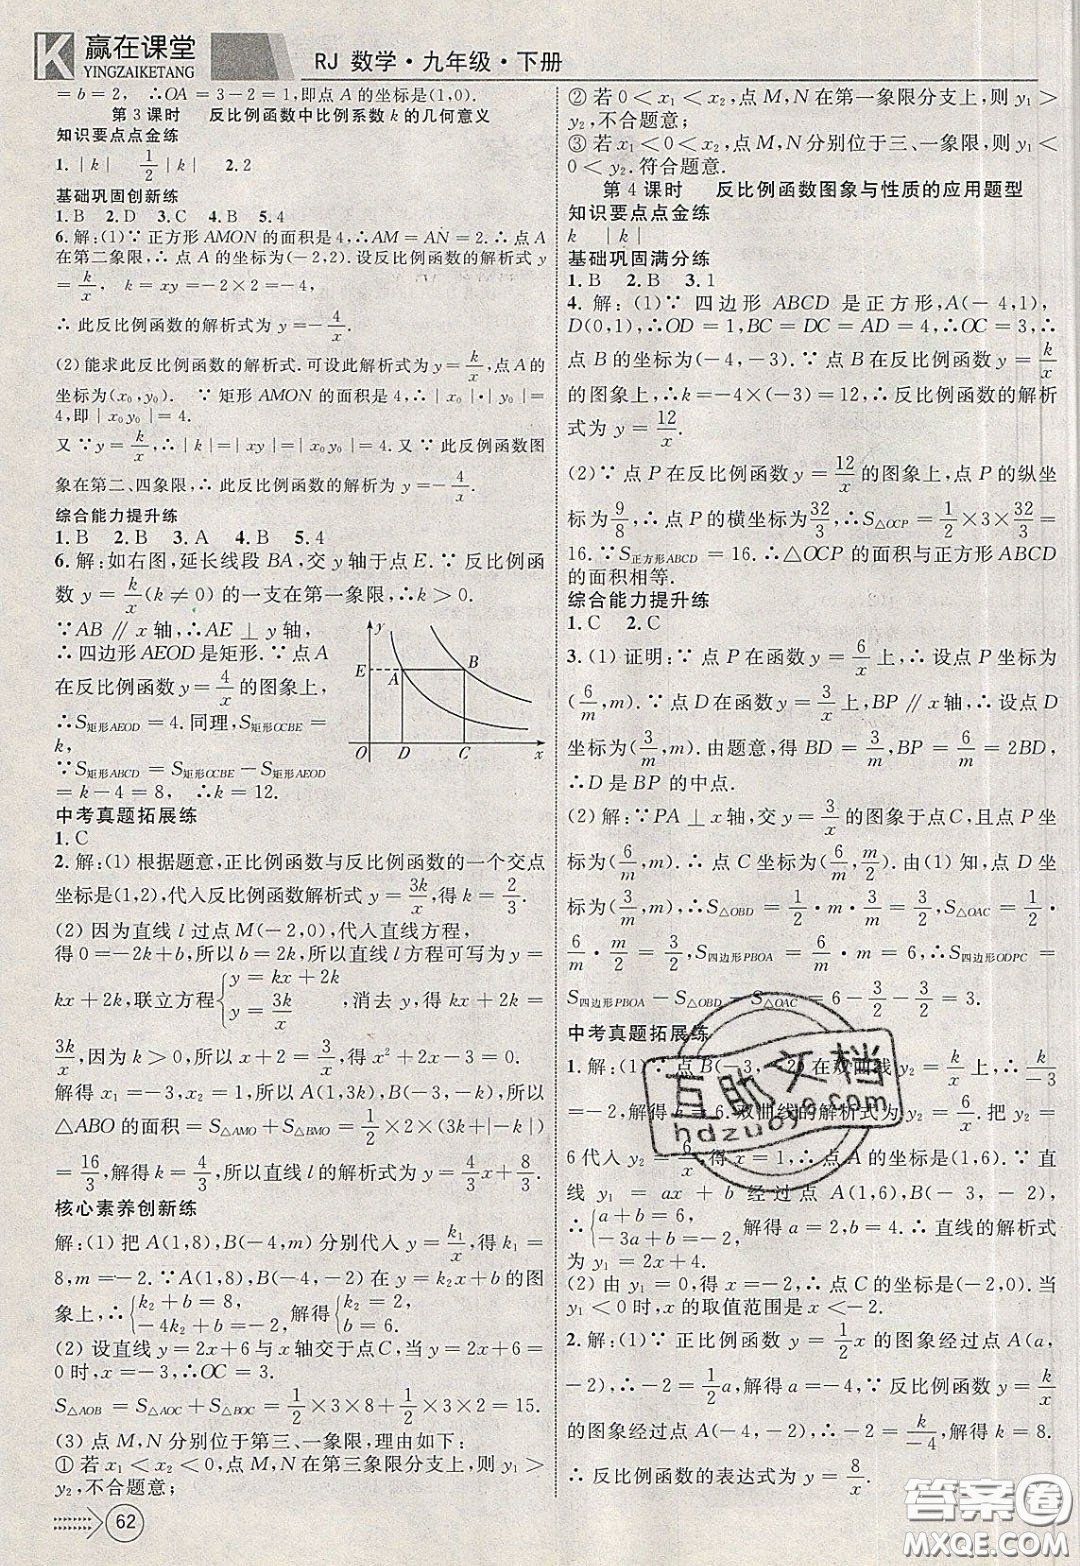 K 赢在课堂
YINGZAIKETANG
RJ 数学·九年级·下册
=b=2, ∴OA=3-2=1,即点A的坐标是(1,0).
第3课时 反比例函数中比例系数k的几何意义
知识要点点金练
1.|k| 1/2|k| 2.2
基础巩固创新练
1.B 2.D 3.C 4.B 5.4
6.解:(1)∵正方形AMON的面积是4,∴AM=AN=2.∴点A
在第二象限,∴点A的坐标为(-2,2).设反比例函数的解析式y
=k/x,∴k=xy=-2×2=-4,
∴此反比例函数的解析式为y=-4/x.
(2)能求此反比例函数的解析式.可设此解析式为y=k/x,点A的
坐标为(x₀,y₀). ∵矩形AMON的面积是4,∴|x₀|·|y₀|=
4,即|x₀y₀|=4.
又∵y=k/x,∴|k|=|xy|=|x₀y₀|=4.又∵此反例函数图
象在第二、四象限,∴此反比例函数的解析式为y=-4/x.
综合能力提升练
1.B 2.B 3.A 4.B 5.4
6.解:如右图,延长线段BA,交y轴于点E.∵反比例函
数y=k/x(k≠0)的一支在第一象限,∴k>0.
∵AB∥x轴,∴AE⊥y轴,
∴四边形AEOD是矩形.∵点A
在反比例函数y=4/x的图象上,
∴S矩形AEOD=4.同理,S矩形OCBE=
k,
∵S矩形ABCD=S矩形OCBE-S矩形AEOD
=k-4=8, ∴k=12.
y
E A B
O D C x
中考真题拓展练
1.C
2.解:(1)根据题意,正比例函数与反比例函数的一个交点
坐标是(1,2),代入反比例函数解析式y=3k/x,得k=2/3.
(2)因为直线l过点M(-2,0),代入直线方程,
得0=-2k+b,所以b=2k,所以直线l方程可写为y=
kx+2k,联立方程{y=kx+2k y=3k/x,消去y,得kx+2k=
3k/x,因为k>0,所以x+2=3/x,得x²+2x-3=0.
解得x₁=-3,x₂=1,所以A(1,3k),B(-3,-k),所以
△ABO的面积=S△AMO+S△BMO=1/2×2×(3k+|-k|)
=16/3,解得k=4/3,所以直线l的解析式为y=4/3x+8/3.
核心素养创新练
解:(1)把A(1,8),B(-4,m)分别代入y=k₁/x,得k₁=
8,m=-2.∵A(1,8),B(-4,-2)在y=k₂x+b的图
象上,∴{k₂+b=8, -4k₂+b=-2, 解得{k₂=2, b=6.
(2)设直线y=2x+6与x轴交于点C,当y=2x+6=
0时,x=-3,∴OC=3.
S△AOB=S△AOC+S△BOC=1/2×3×8+1/2×3×2=15.
(3)点M,N分别位于第三、一象限,理由如下:
①若x₁<x₂<0,点M,N在第三象限分支上,则y₁>
y₂,不合题意;
②若0<x₁<x₂,点M,N在第一象限分支上,则y₁>
y₂,不合题意;
③若x₁<0<x₂,点M,N分别位于三、一象限,则y₁<
0<y₂.符合题意.
第4课时 反比例函数图象与性质的应用题型
知识要点点金练
k |k|
基础巩固满分练
1.B 2.B 3.1
4.解:(1)∵四边形ABCD是正方形,A(-4,1),
D(0,1),∴OD=1,BC=DC=AD=4,∴OC=3,∴
点B的坐标为(-4,-3).∵点B在反比例函数y=k/x
的图象上,∴k=-4×(-3)=12,∴反比例函数的解析
式为y=12/x.
(2)∵点P在反比例函数y=12/x的图象上,点P的纵坐
标为9/8,∴点P的横坐标为32/3,∴S△OCP=1/2×3×32/3=
16.∵S正方形ABCD=16.∴△OCP的面积与正方形ABCD
的面积相等.
综合能力提升练
1.C 2.C
3.(1)证明:∵点P在函数y=6/x上,∴设点P坐标为
(6/m,m).∵点D在函数y=3/x上,BP∥x轴,∴设点D
坐标为(3/m,m).由题意,得BD=3/m,BP=6/m=2BD,
∴D是BP的中点.
(2)解:∵PA⊥x轴,y=3/x的图象过点C,且点P坐
标为(6/m,m).∴点C坐标为(6/m,m/2).由(1)知,点D坐
标为(3/m,m),∴S△OBD=1/2·m·3/m=3/2,S△OAC=1/2·
6/m·m/2=3/2,S四边形PBOA=6/m·m=6,∴S四边形ODPC=
S四边形PBOA-S△OBD-S△OAC=6-3/2-3/2=3.
中考真题拓展练
1.解:(1)∵点B(-3,-2)在双曲线y₂=k/x上,∴k/-3
=-2,解得k=6.双曲线的解析式为y₂=6/x.把y₂=
6代入y₂=6/x,得x=1,∴点A的坐标为(1,6).∵直
线y₁=ax+b经过点A(1,6),B(-3,-2),
∴{a+b=6, -3a+b=-2, 解得a=2,b=4.∴直线的解析式
为y₁=2x+4.
(2)由y₁=0,得x=-2,∴点C的坐标为(-2,0).当
y₁<0时,x的取值范围是x<-2.
2.解:(1)∵正比例函数y=1/2x的图象经过点A(a,
-2),∴-2=1/2a,解得a=-4,∵反比例函数y=k/x
的图象经过点A(-4,-2),∴-2=k/-4,解得k=8.
∴反比例函数的表达式为y=8/x.
62
互助文档
hdzuoye.com
答案圈
MXQE.COM